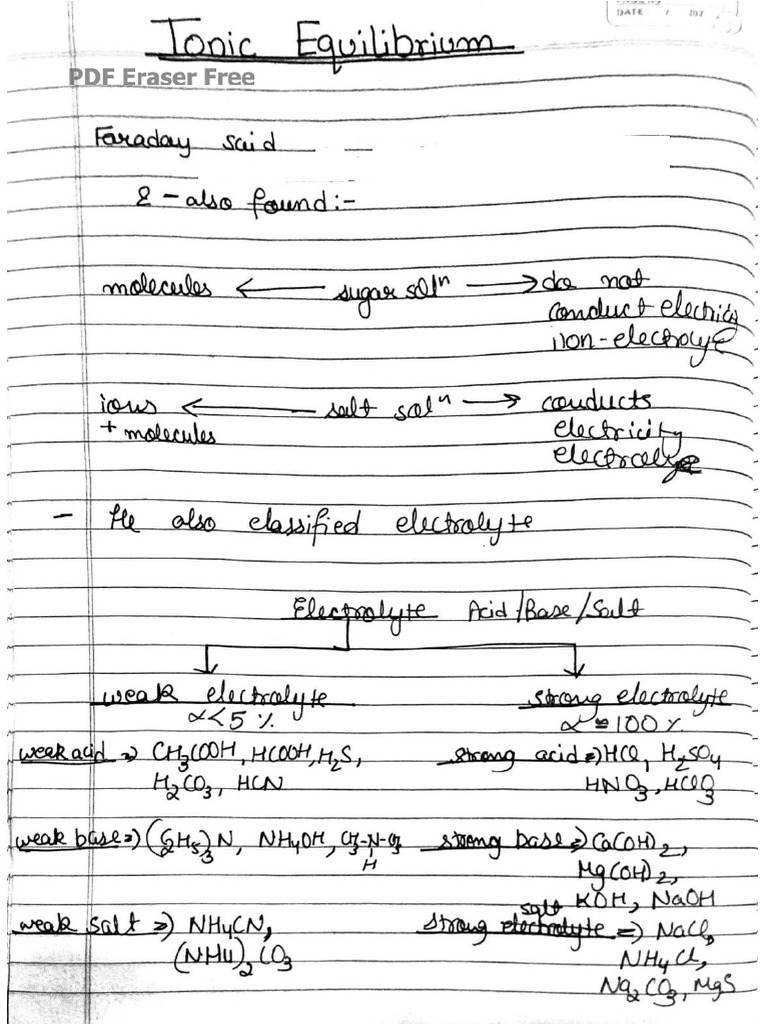 DATE / 202
Ionic Equilibrium
PDF Eraser Free
Faraday said
& - also found:-
molecules ← sugar solⁿ → do not
conduct electricity
non-electrolyte
ions ← salt solⁿ → conducts
+ molecules electricity
electrolyte
- He also classified electrolyte
Electrolyte Acid/Base/Salt
weak electrolyte strong electrolyte
α<5 % α ≈ 100 %
weak acid ⇒ CH3COOH, HCOOH, H2S, strong acid ⇒ HCl, H2SO4
H2CO3, HCN HNO3, HClO3
weak base ⇒ (C2H5)3N, NH4OH, CH3-N-CH3 strong base ⇒ Ca(OH)2,
H Mg(OH)2,
KOH, NaOH
weak salt ⇒ NH4CN, strong salt ⇒ NaCl,
(NH4)2CO3 NH4Cl,
Na2CO3, MgS